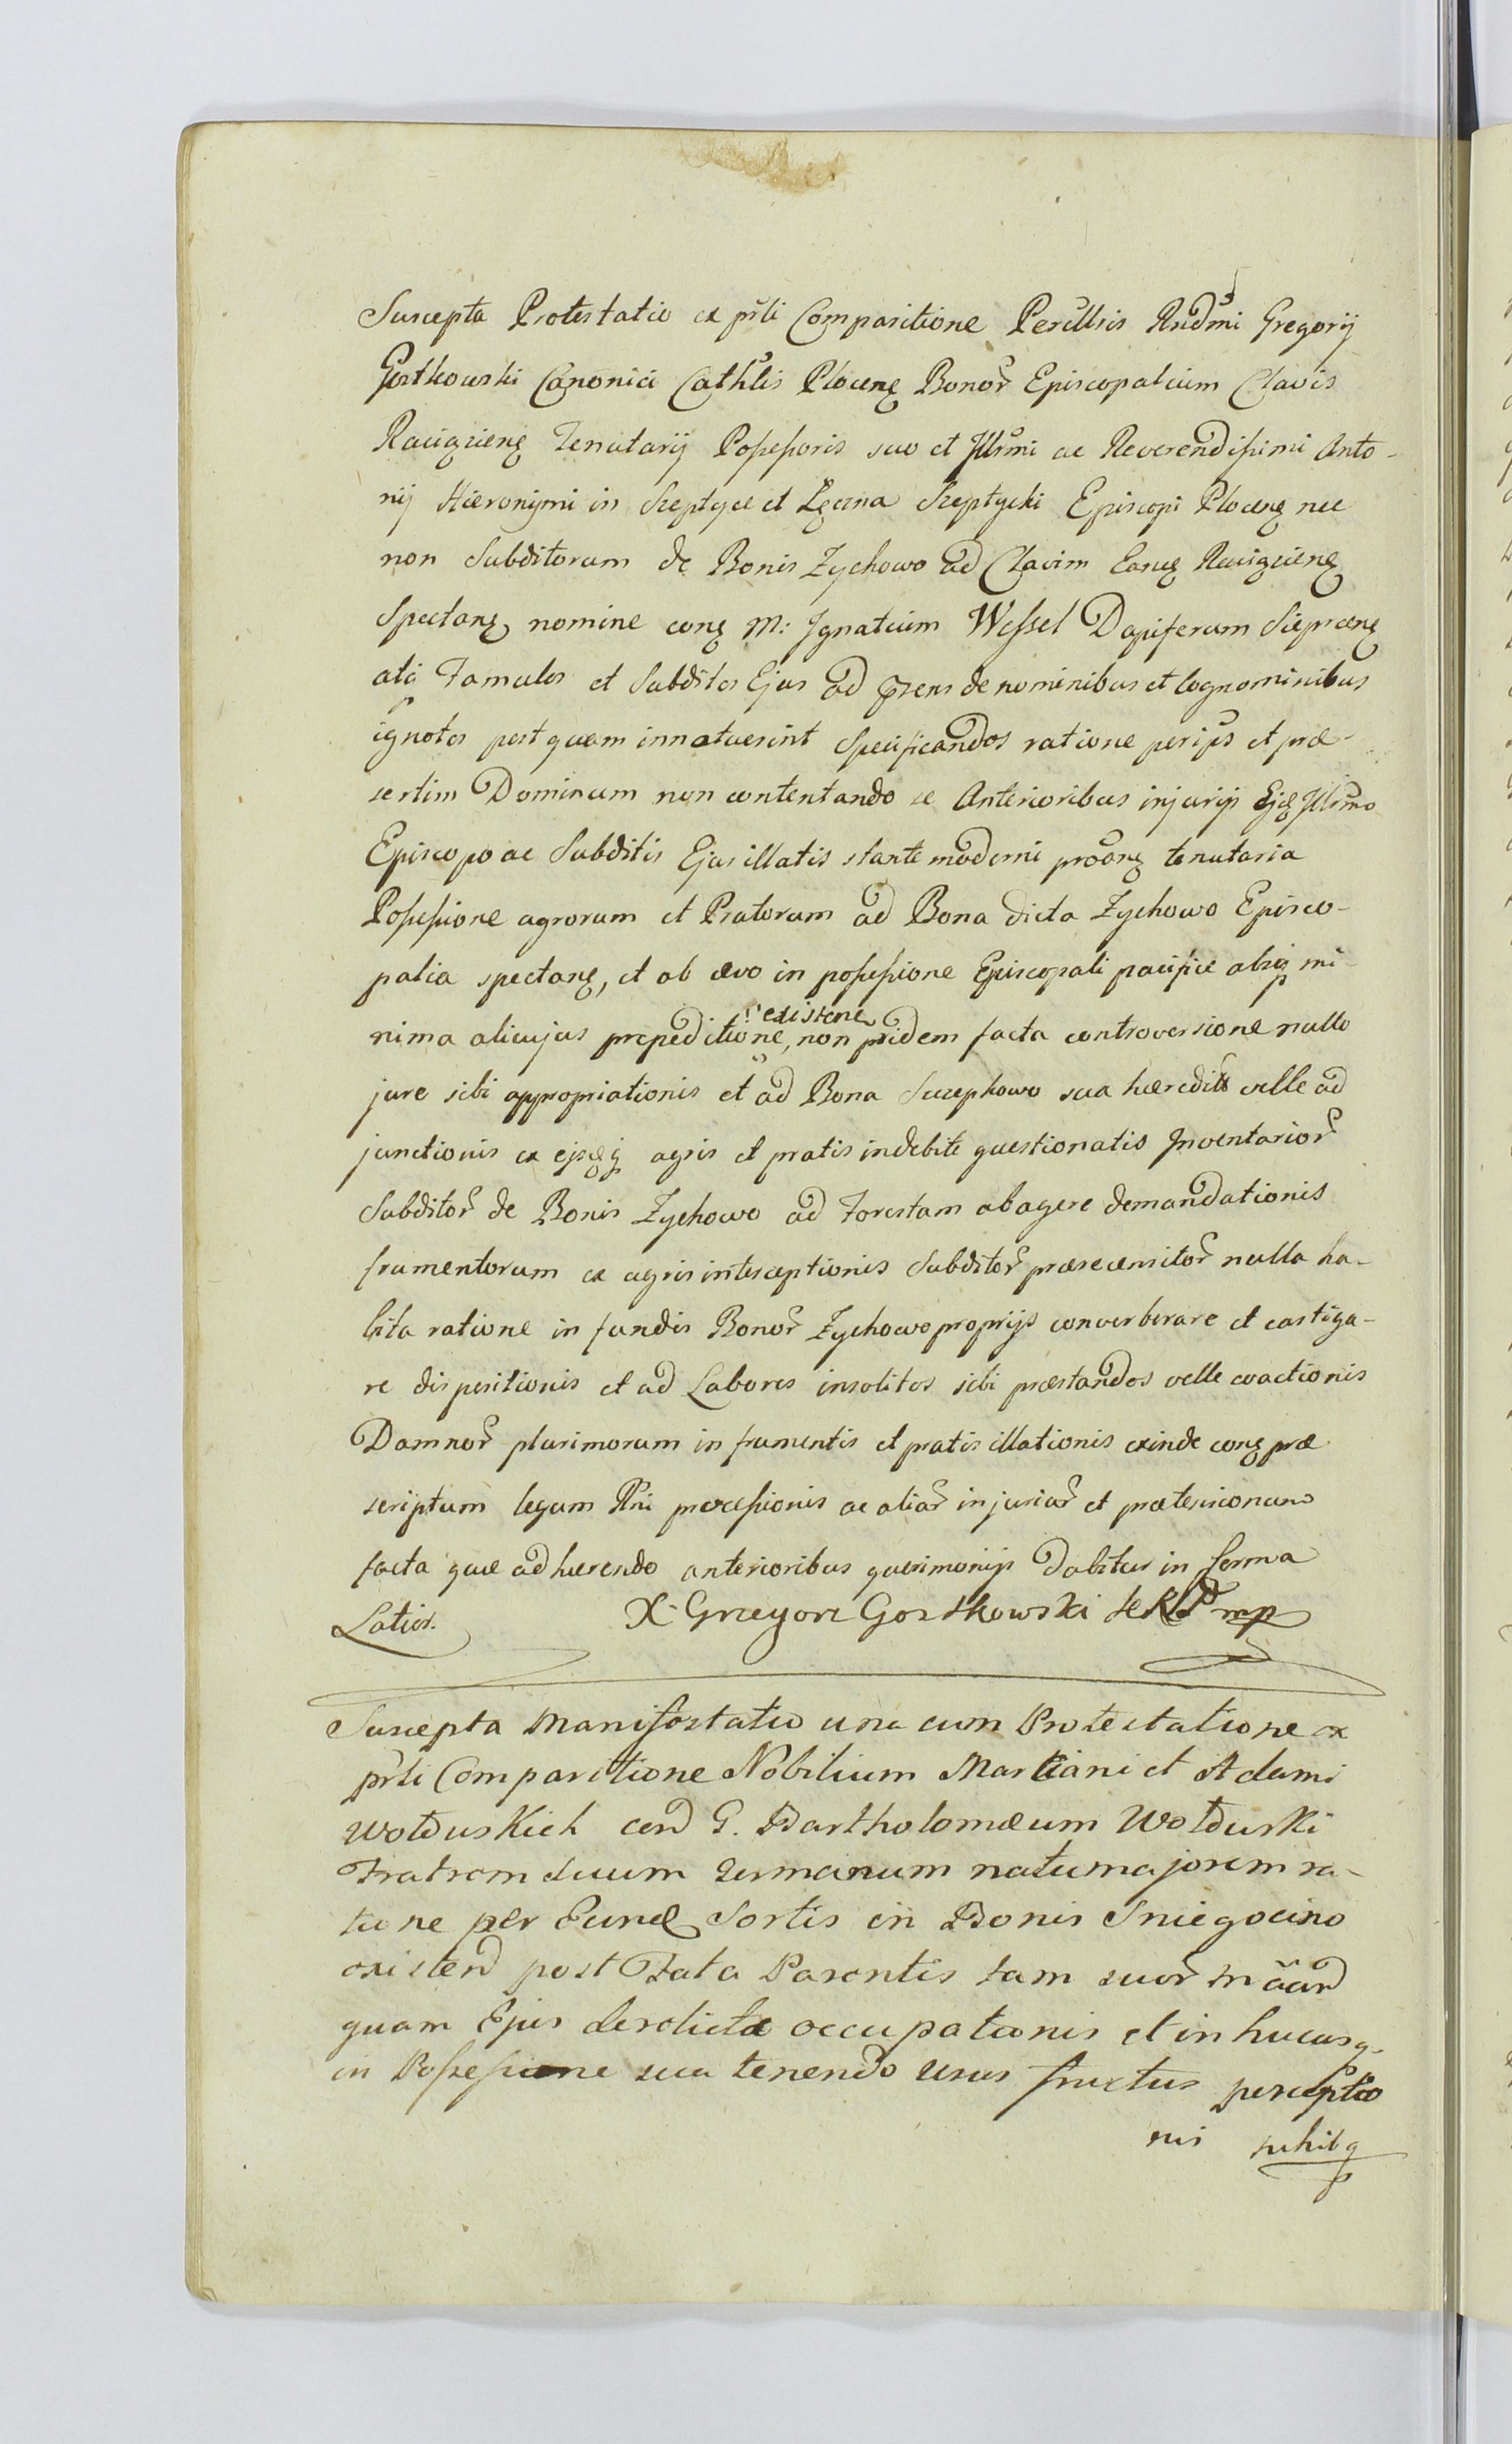 Suscepta Protestatio ex prsli Comparitione Perillris Rndmi Gregorij
Gostkowski Canonici Cathlis Plocens Bonor Episcopalium Clavis
Raciąziens Tenutarij Possessoris suo et Illrmi ac Reverendissimi Anto-
nij Hieronymi in Szeptyce et Łęczna Szeptycki Episcopi Plocens nec
non Subditorum de Bonis Zychowo ad Clavim Eand Raciąziens
Spectans nomine cons M: Ignatium Wessel Dapiferum Sieprcens
atq Famulos et Subditos Ejus ad prsens de nominibus et Cognominibus
ignotos post quam innotuerint Specificandos ratione per ips et præ-
sertim Dominum non contentando se Anterioribus injurijs Ejd Illrmo
Episcopo ac Subditis Ejus illatis stante moderni proons tenutaria
Possessione agrorum et Pratorum ad Bona dicta Zychowo Episco-
palia spectans, et ab ævo in possessione Episcopali pacifice absq mi-
nima alicujus prepeditione, existens non pridem facta controversione nullo
jure sibi appropriationis et ad Bona Szczepkowo sua hæredit velle ad
junctionis ex ejsdq agris et pratis indebite questionatis Inventarior
Subditor de Bonis Zychowo ad Forestam abagere demandationis
frumentorum ex agris interceptionis Subditor prærecensitor nulla ha-
bita ratione in fundis Bonor Zychowo proprijs converberare et castiga-
re dispositionis et ad Labores insolitos sibi præstandos velle coactionis
Damnor plurimorum in frumentis et pratis illationis exinde cons præ
scriptum legum Rni processionis ac aliar injuriar et prætensionum
facta quæ adhærendo anterioribus querimonijs dabitur in forma
Latiori. X. Grzegorz Gostkowski mp
Suscepta Manifestatio una cum Protestatione ex
prsli Comparitione Nobilium Marciani et Adami
Wołduskich cond G. Bartholomæum Wołduski
Fratrem suum Germanum natu majorem ra-
tione per Eund Sortis in Bonis Sniegocino
existend post Fata Parentis tam suor
quam Ejus derolictæ occupationis et in hucusq
in Possessione sua tenendo usus fructus perceptio
nis